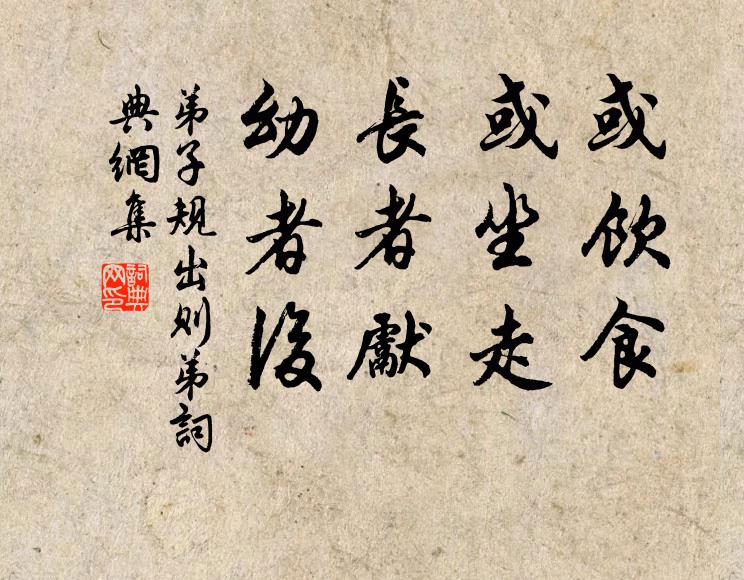 或飲食
或坐走
長者獻
幼者後
弟子規出則弟詞
典網集
詞典
网印